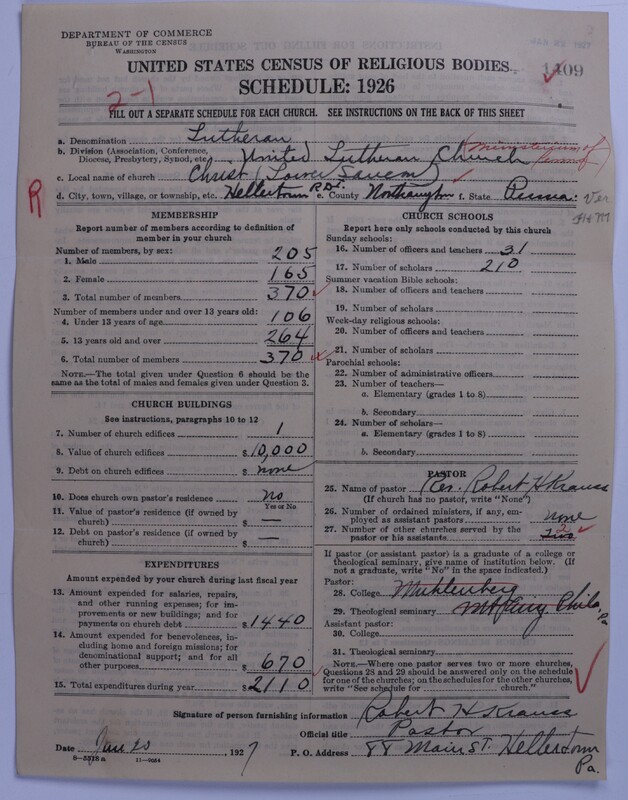 DEPARTMENT OF COMMERCE
BUREAU OF THE CENSUS
WASHINGTON
UNITED STATES CENSUS OF RELIGIOUS BODIES
1409
SCHEDULE: 1926
2-1
FILL OUT A SEPARATE SCHEDULE FOR EACH CHURCH. SEE INSTRUCTIONS ON THE BACK OF THIS SHEET
a. Denomination Lutheran
b. Division (Association, Conference, Diocese, Presbytery, Synod, etc.) United Lutheran Church (Ministerium of
c. Local name of church Christ (Lower Saucon)
d. City, town, village, or township, etc. Hellertown R.D.1. e. County Northampton f. State Penna.
R
Ver
MEMBERSHIP
Report number of members according to definition of member in your church
Number of members, by sex:
1. Male 205
2. Female 165
3. Total number of members 370
Number of members under and over 13 years old:
4. Under 13 years of age 106
5. 13 years old and over 264
6. Total number of members 370
NOTE.—The total given under Question 6 should be the same as the total of males and females given under Question 3.
CHURCH BUILDINGS
See instructions, paragraphs 10 to 12
7. Number of church edifices 1
8. Value of church edifices $ 10,000
9. Debt on church edifices $ none
10. Does church own pastor's residence No
Yes or No
11. Value of pastor's residence (if owned by church) $ —
12. Debt on pastor's residence (if owned by church) $ —
EXPENDITURES
Amount expended by your church during last fiscal year
13. Amount expended for salaries, repairs, and other running expenses; for improvements or new buildings; and for payments on church debt $ 1440
14. Amount expended for benevolences, including home and foreign missions; for denominational support; and for all other purposes $ 670
15. Total expenditures during year $ 2110
CHURCH SCHOOLS
Report here only schools conducted by this church
Sunday schools:
16. Number of officers and teachers 31
17. Number of scholars 210
Summer vacation Bible schools:
18. Number of officers and teachers
19. Number of scholars
Week-day religious schools:
20. Number of officers and teachers
21. Number of scholars
Parochial schools:
22. Number of administrative officers
23. Number of teachers—
a. Elementary (grades 1 to 8)
b. Secondary
24. Number of scholars—
a. Elementary (grades 1 to 8)
b. Secondary
PASTOR
25. Name of pastor Rev. Robert H Krauss
(If church has no pastor, write "None")
26. Number of ordained ministers, if any, employed as assistant pastors none
27. Number of other churches served by the pastor or his assistants 2 Two
If pastor (or assistant pastor) is a graduate of a college or theological seminary, give name of institution below. (If not a graduate, write "No" in the space indicated.)
Pastor:
28. College Muhlenberg
29. Theological seminary Mt Airy Phila, Pa
Assistant pastor:
30. College
31. Theological seminary
NOTE.—Where one pastor serves two or more churches, Questions 28 and 29 should be answered only on the schedule for one of the churches; on the schedules for the other churches, write "See schedule for church."
Signature of person furnishing information Robert H Krauss
Official title Pastor
Date Jan 20 1927
P. O. Address 88 Main ST. Hellertown Pa.
11—9024